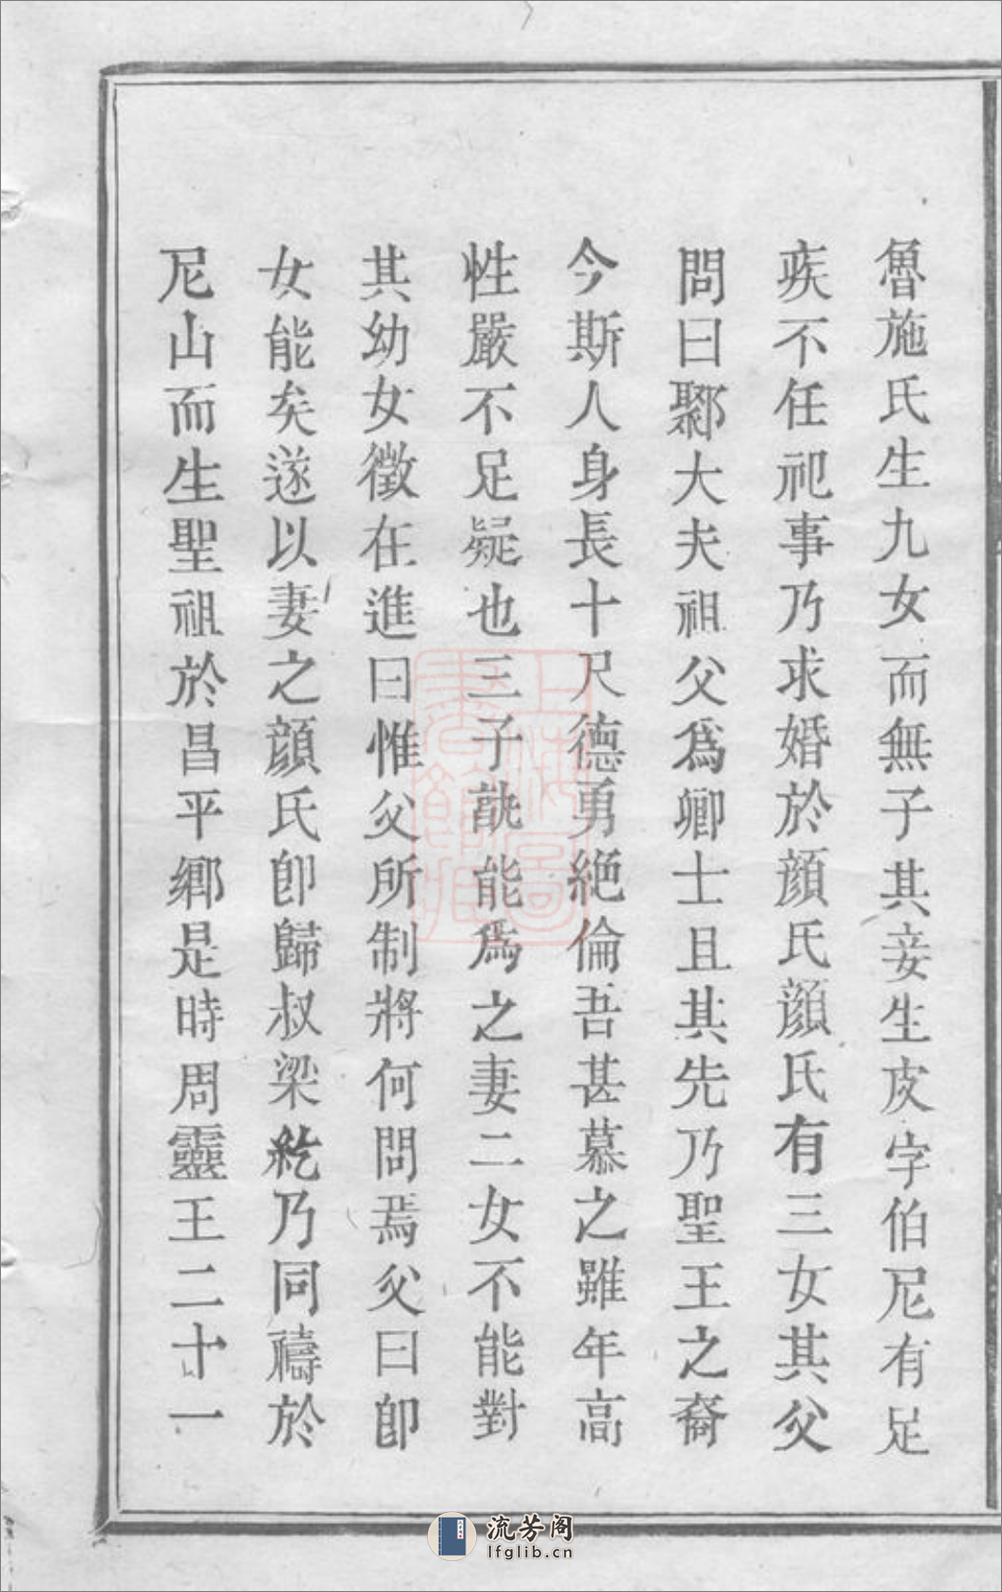 魯施氏生九女而無子其妾生皮字伯尼有足
疾不任祀事乃求婚於顔氏顔氏有三女其父
問曰鄹大夫祖父爲卿士且其先乃聖王之裔
今斯人身長十尺德勇絶倫吾甚慕之雖年高
性嚴不足疑也三子孰能爲之妻二女不能對
其幼女徵在進曰惟父所制將何問焉父曰卽
女能矣遂以妻之顔氏卽歸叔梁紇乃同禱於
尼山而生聖祖於昌平鄉是時周靈王二十一
上海圖書館藏
流芳阁
lfglib.cn